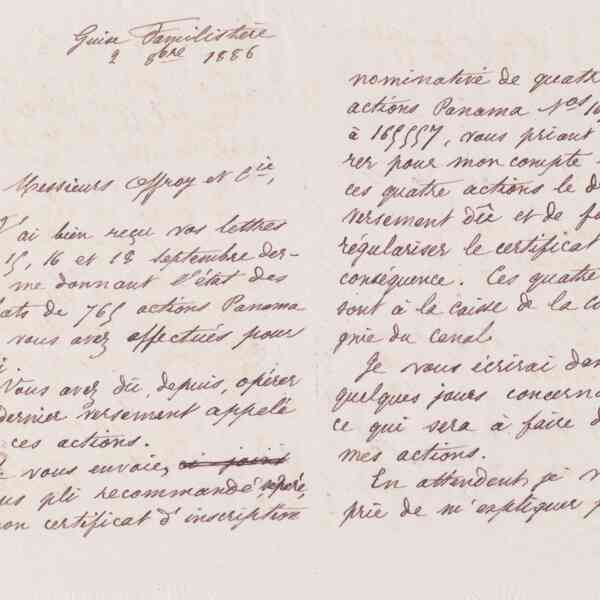 Guise Familistère
2 8bre 1886
Messieurs Offroy et Cie,
J'ai bien reçu vos lettres
15, 16 et 18 septembre der-
me donnant l'état des
ats de 765 actions Panama
vous avez effectués pour
Vous avez dû, depuis, opérer
dernier versement appelé
ces actions.
vous envoie, ci joint
pli recommandé,
certificat d'inscription
nominative de quatre
actions Panama Nos
à 165557, vous priant
rer pour mon compte
ces quatre actions le
versement dû et de
régulariser le certificat
conséquence. Ces quatre
sont à la caisse de la
gnie du canal.
Je vous écrirai dans
quelques jours
ce qui sera à faire
mes actions.
En attendant, je
prie de m'expliquer